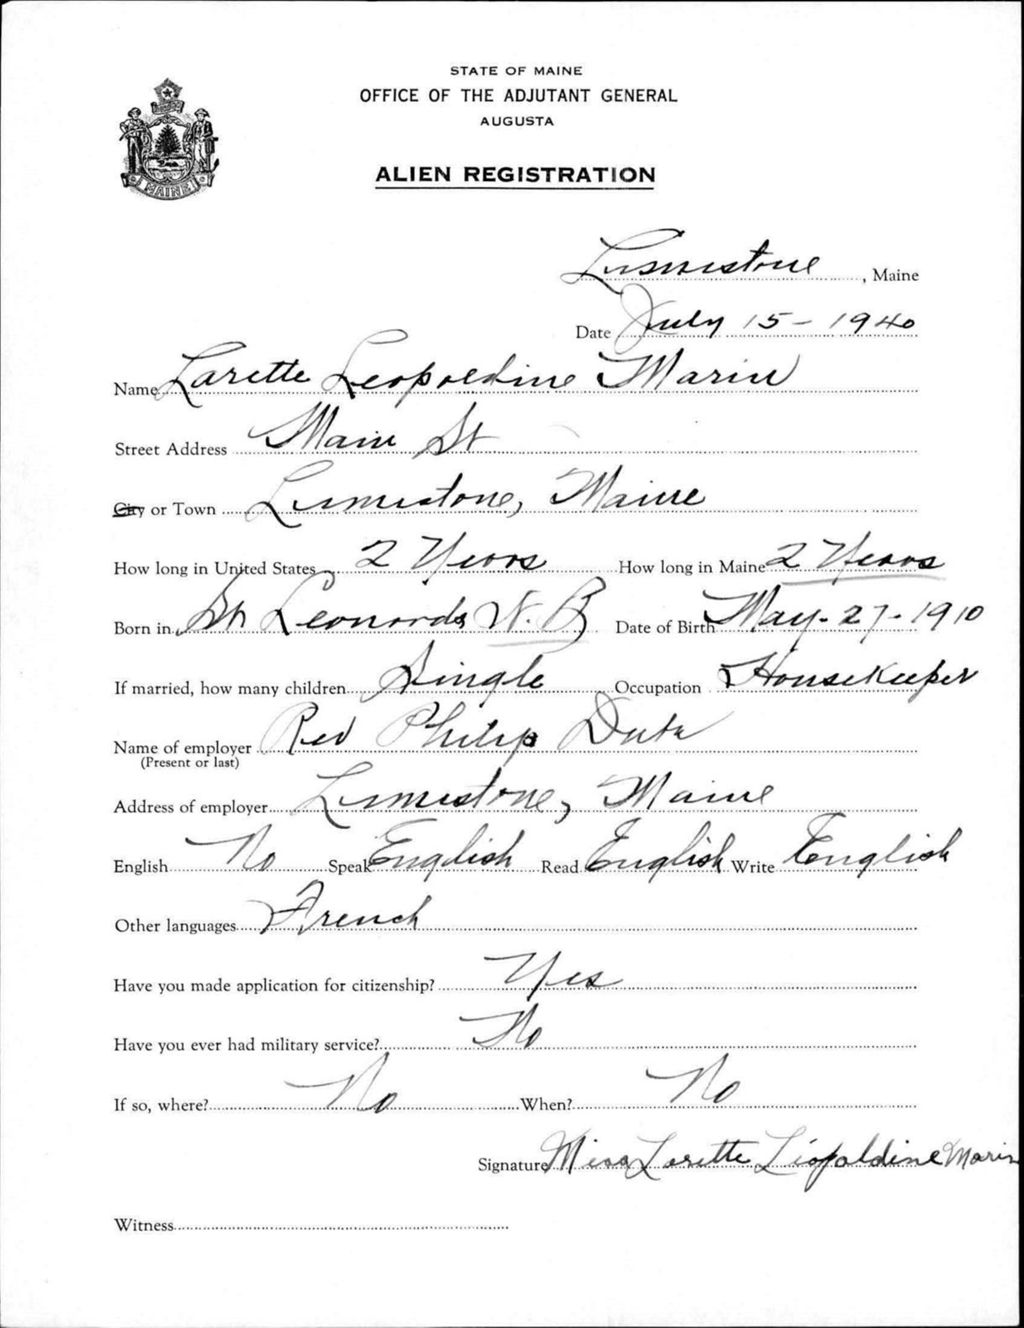 STATE OF MAINE
OFFICE OF THE ADJUTANT GENERAL
AUGUSTA
ALIEN REGISTRATION
MAINE
Limestone, Maine
Date July 15 - 1940
Name Larette Leopoldine Marin
Street Address Main St
City or Town Limestone, Maine
How long in United States 2 Years How long in Maine 2 Years
Born in St Leonards N.B Date of Birth May-27-1910
If married, how many children Single Occupation Housekeeper
Name of employer Rev Philip
(Present or last)
Address of employer Limestone, Maine
English No Speak English Read English Write English
Other languages French
Have you made application for citizenship? Yes
Have you ever had military service? No
If so, where? No When? No
Signature Miss Larette Leopaldine Marin
Witness